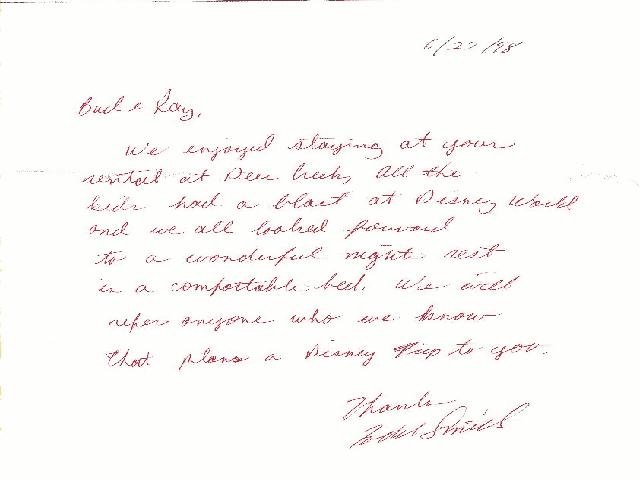 6/27/98
Bud & Kay,
We enjoyed staying at your
rental at Deer Creek, All the
kids had a blast at Disney World
and we all looked forward
to a wonderful night rest
in a comfortable bed. We will
refer anyone who we know
that plans a Disney trip to you.
Thanks